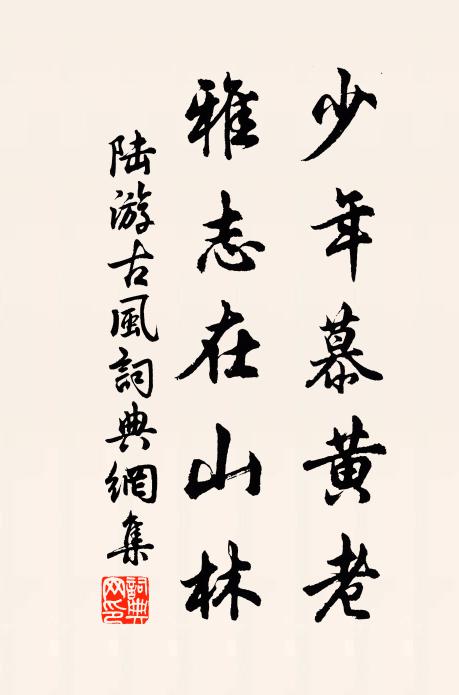 少年慕黄老
雅志在山林
陆游古風詞典網集
詞典網印